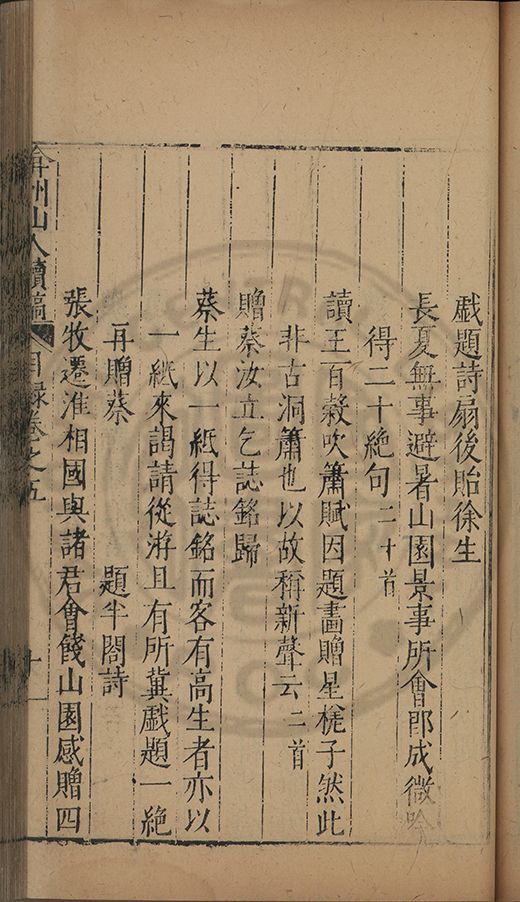 戯題詩扇後貽徐生
長夏無事避暑山園景事所會郎成微吟
得二十絶句二十首
讀王百穀吹簫賦因題畫贈星槎子然此
非古洞簫也以故稱新聲云二首
贈蔡汝立乞誌銘歸
蔡生以一紙得誌銘而客有高生者亦以
一紙來謁請從游且有所冀戯題一絶
再贈蔡 題半閣詩
張牧遷淮相國與諸君會餞山園感贈四
弇州山人續稿 目録卷之五 十